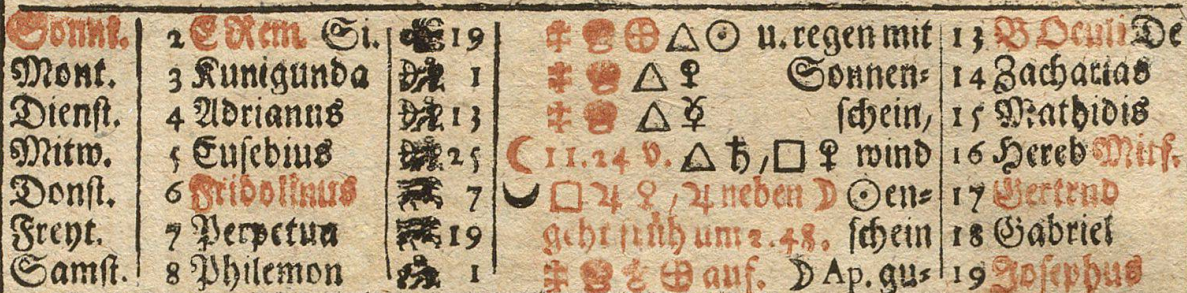 Sonnt. 2 E Rem. Si. 19 △ ☉ u. regen mit 13 B Oculi De
Mont. 3 Kunigunda 1 △ ♀ Sonnen⸗ 14 Zacharias
Dienst. 4 Adrianus 13 △ ☿ schein, 15 Mathidis
Mitw. 5 Eusebius 25 ☾ 11.24 v. △ ♄, □ ♀ wind 16 Hereb Mitf.
Donst. 6 Fridolinus 7 □ ♃ ♀, ♃ neben ☽ ☉en⸗ 17 Gertrud
Freyt. 7 Perpetua 19 geht früh um 2.48. schein 18 Gabriel
Samst. 8 Philemon 1 auf. ☽ Ap. gu⸗ 19 Josephus